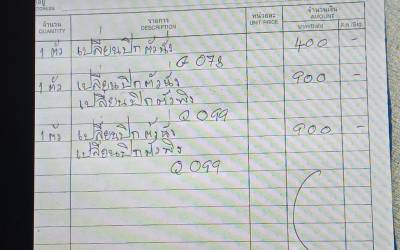 ADDRESS
จำนวน รายการ หน่วยละ จำนวนเงิน
QUANTITY DESCRIPTION UNIT PRICE AMOUNT
1 ตัว เปลี่ยนปีกตัวนั่ง 400 -
Q 078
1 ตัว เปลี่ยนปีกตัวนั่ง 900 -
เปลี่ยนปีกตัวพิง
Q 099
1 ตัว เปลี่ยนปีกตัวนั่ง 900 -
เปลี่ยนปีกตัวพิง
Q 099